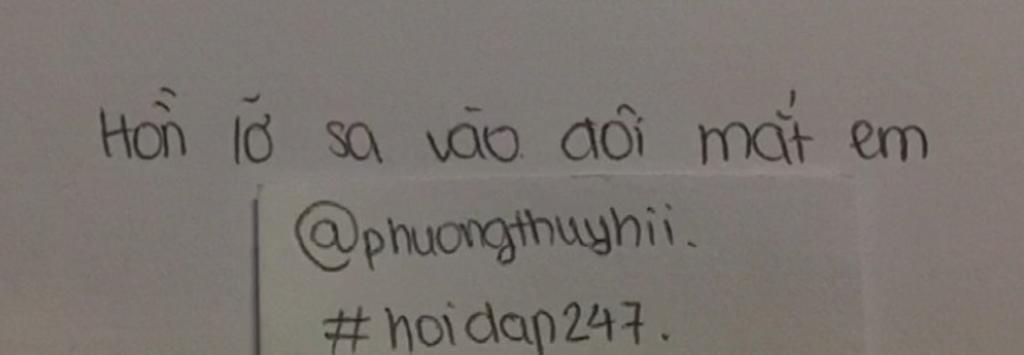 Hồn lỡ sa vào đôi mắt em
@phuongthuyhii.
#hoidap247.